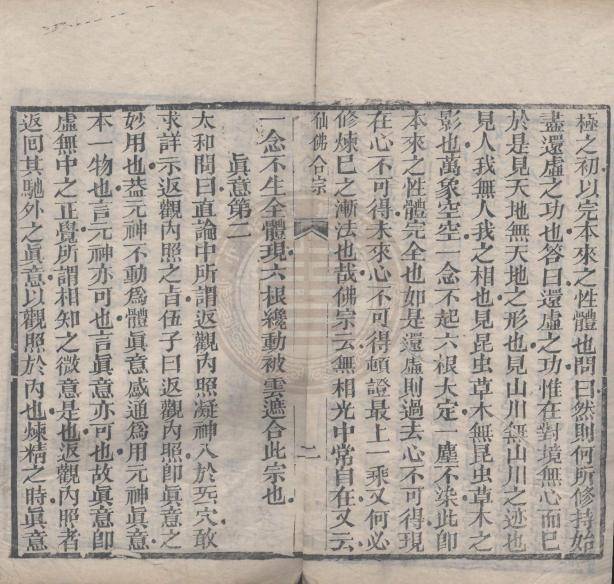 極之初以完本來之性體也問曰然則何所修持始
盡還虛之功也答曰還虛之功惟在對境無心而已
於是見天地無天地之形也見山川無山川之迹也
見人我無人我之相也見昆虫草木無昆虫草木之
影也萬象空空一念不起六根大定一塵不染此卽
本來之性體完全也如是還虛則過去心不可得現
在心不可得未來心不可得頓證最上一乘又何必
修煉已之漸法也哉佛宗云無相光中常自在又云
仙佛合宗
二
一念不生全體現六根纔動被雲遮合此宗也
眞意第二
太和問曰直論中所謂返觀內照凝神入於炁穴敢
求詳示返觀內照之旨伍子曰返觀內照卽眞意之
妙用也葢元神不動爲體眞意感通爲用元神眞意
本一物也言元神亦可也言眞意亦可也故眞意卽
虛無中之正覺所謂相知之微意是也返觀內照者
返回其馳外之眞意以觀照於內也煉精之時眞意